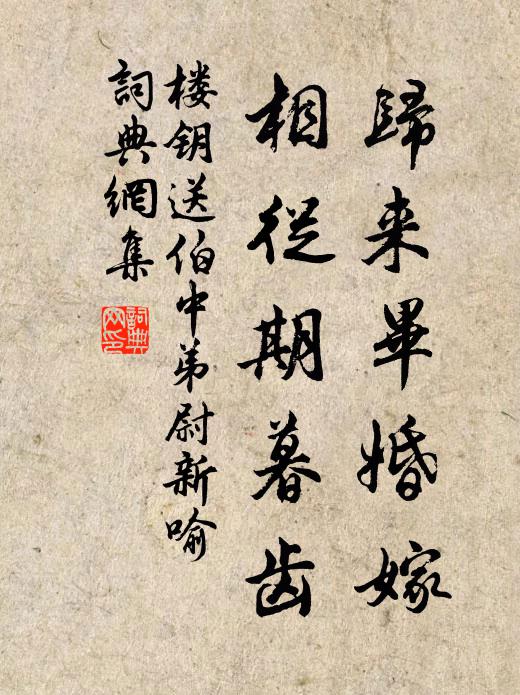 歸来畢婚嫁
相從期暮齿
楼钥送伯中弟尉新喻
詞典網集
詞典网印